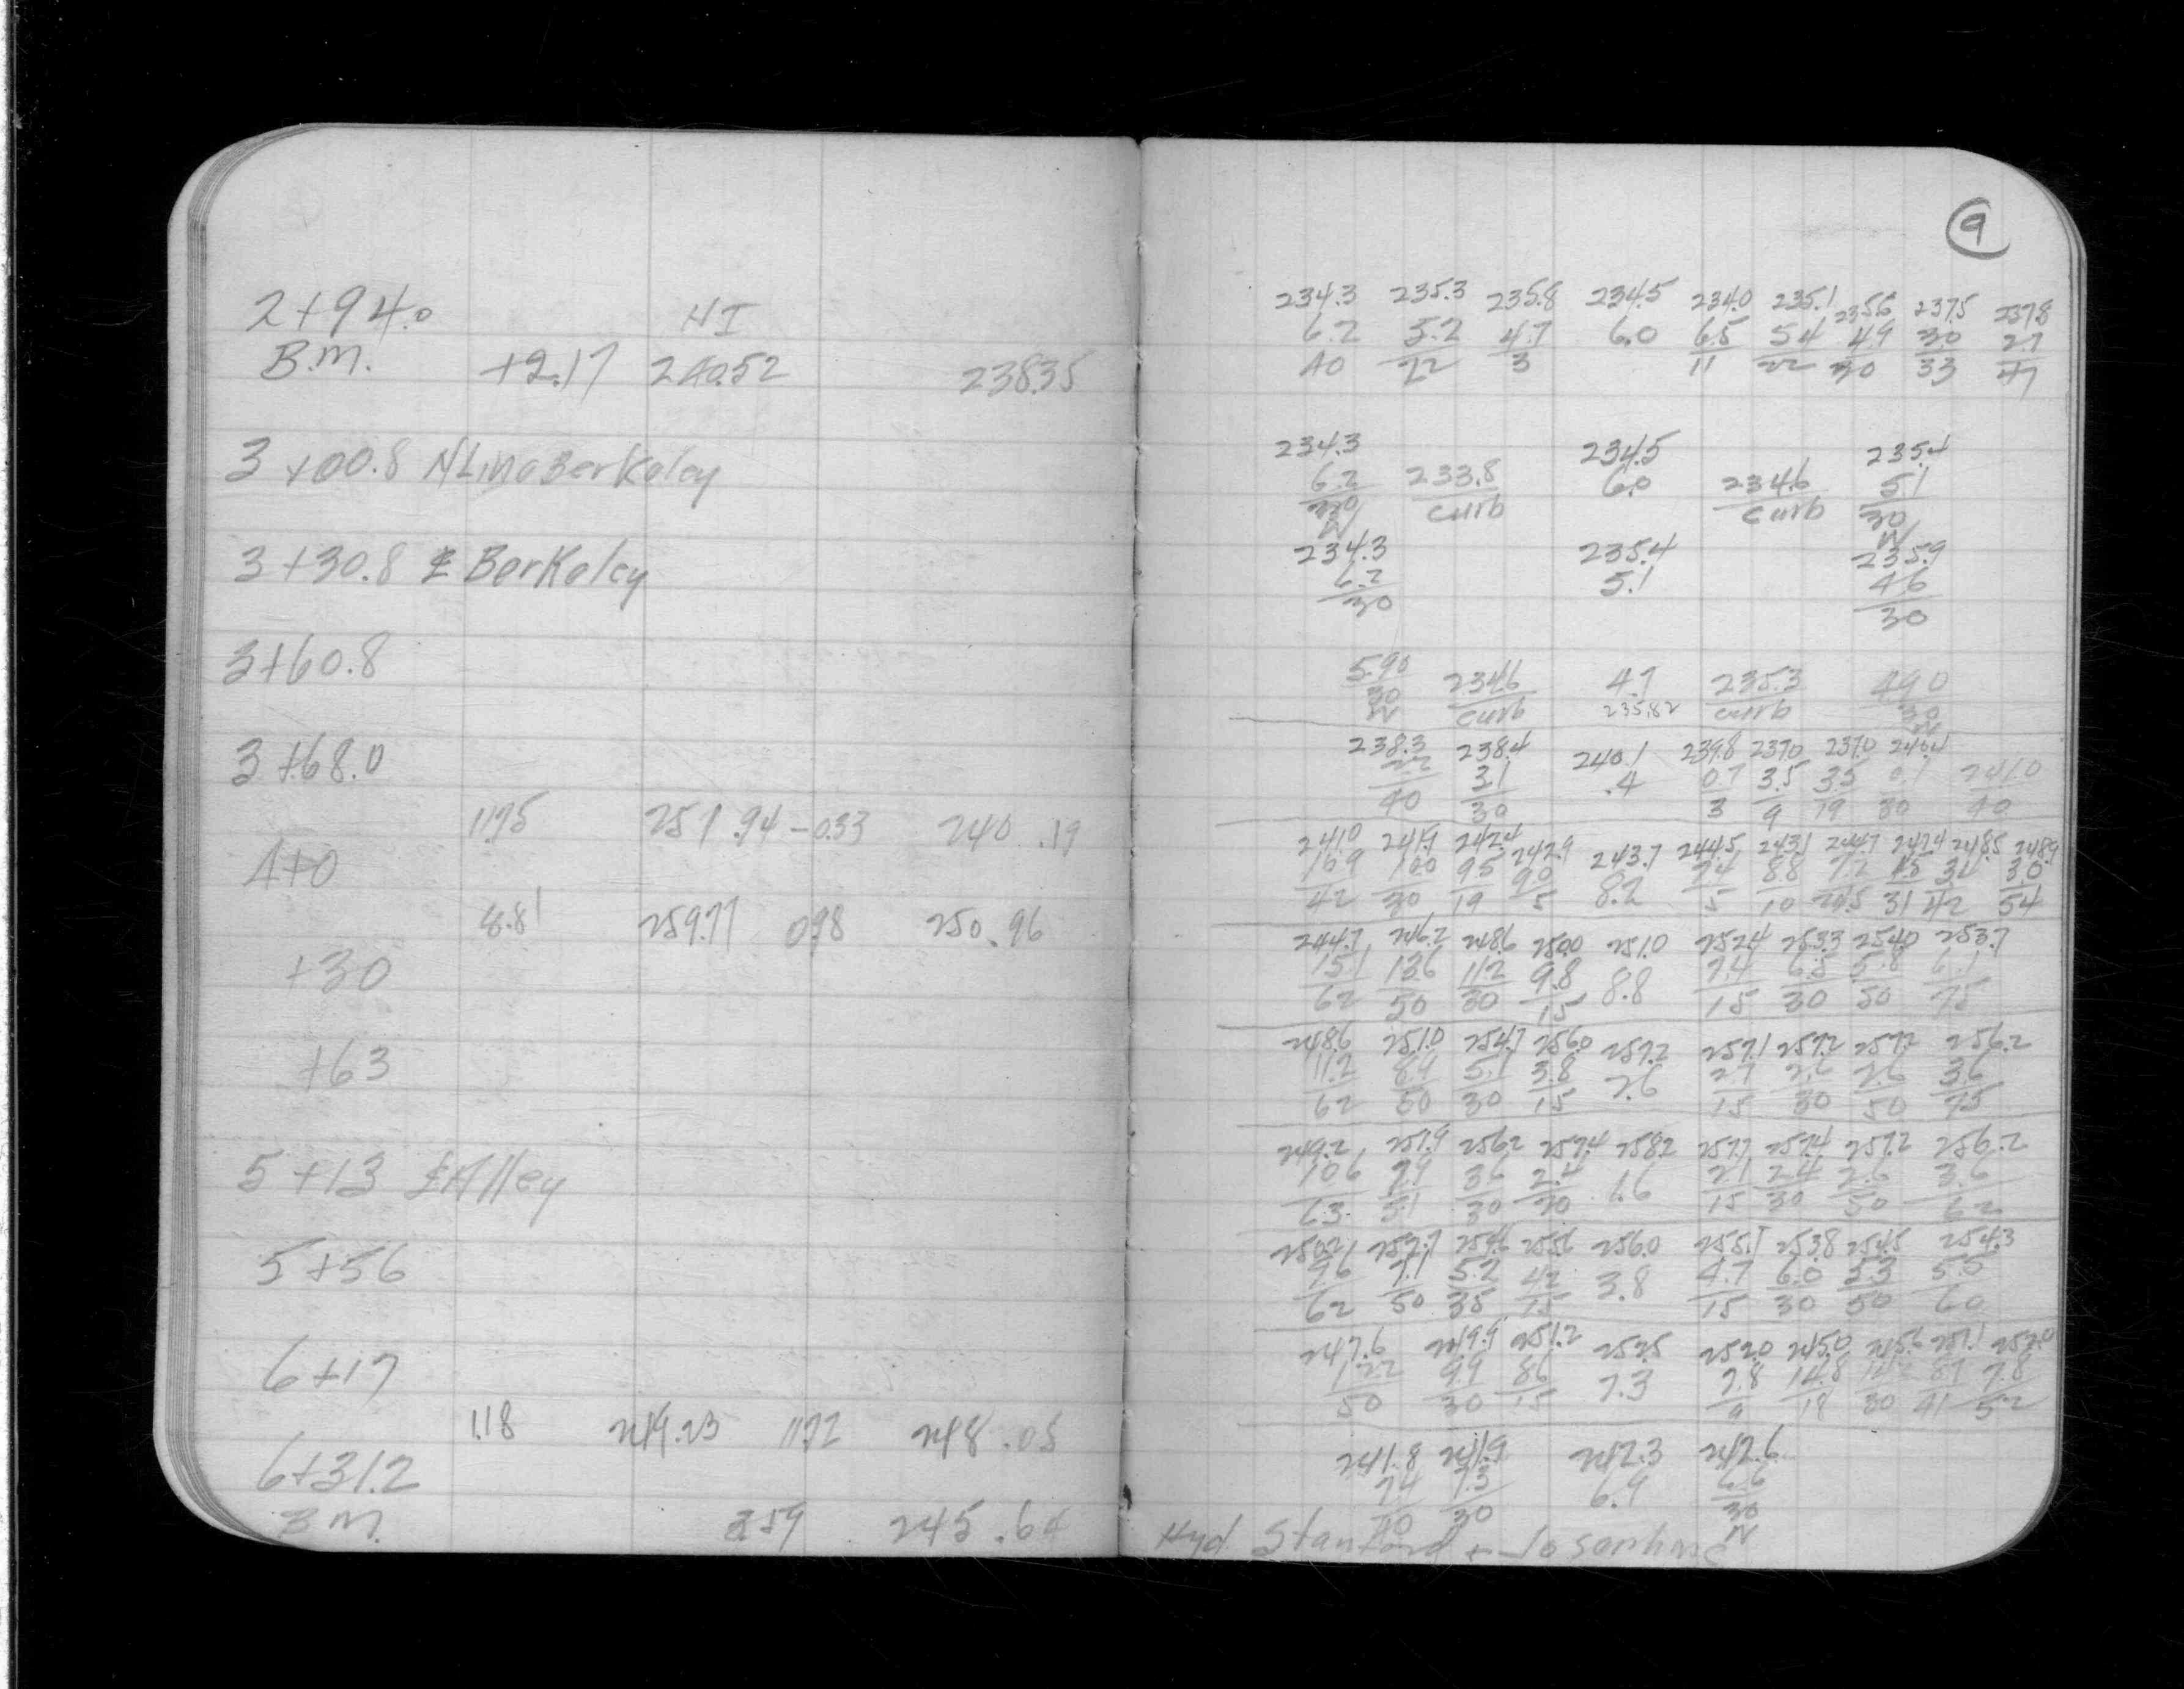 9
2+94.0 HI
B.M. +2.17 240.52 238.35
3+00.8 N Line Berkeley
3+30.8 ℄ Berkeley
3+60.8
3+68.0
11.75 251.94 -0.33 240.19
4+0
8.81 259.77 0.98 250.96
+30
+63
5+13 ℄ Alley
5+56
6+17
1.18 249.23 11.72 248.05
6+31.2
B.M. 3.59 245.64
234.3 235.3 235.8 234.5 234.0 235.1 235.6 237.5 237.8
6.2 5.2 4.7 6.0 6.5 5.4 4.9 3.0 2.7
40 22 3 11 22 30 33 47
234.3 234.5 235.4
6.2 233.8 6.0 234.6 5.1
30 curb curb 30
W W
234.3 235.4 235.9
6.2 5.1 4.6
30 30
5.90 234.6 4.7 235.3 4.90
30 curb 235.82 curb 30
W W
238.3 238.4 240.1 239.8 237.0 237.0 240.4
2.2 3.1 .4 0.7 3.5 3.5 0.1 241.0
40 30 3 9 19 30 40
241.0 241.9 242.4 242.9 243.7 244.5 243.1 244.7 247.4 248.5 248.9
10.9 10.0 9.5 9.0 8.2 7.4 8.8 7.2 3.0
42 30 19 5 5 10 31 42 54
244.7 246.2 248.6 250.0 251.0 252.4 253.3 254.0 253.7
15.1 13.6 11.2 9.8 8.8 7.4 6.5 5.8 6.1
62 50 30 15 15 30 50 75
248.6 251.0 254.7 256.0 257.2 257.1 257.2 257.2 256.2
11.2 8.9 5.1 3.8 2.6 2.7 2.6 2.6 3.6
62 50 30 15 15 30 50 75
249.2 251.9 256.2 257.4 258.2 257.7 257.4 257.2 256.2
10.6 7.9 3.6 2.4 1.6 2.1 2.4 2.6 3.6
63 51 30 20 15 30 50 62
250.2 252.7 254.6 255.6 256.0 255.1 253.8 254.5 254.3
9.6 7.1 5.2 4.2 3.8 4.7 6.0 5.3 5.5
62 50 35 15 15 30 50 60
247.6 249.9 251.2 252.5 252.0 245.0 245.6 251.1 252.0
12.2 9.9 8.6 7.3 7.8 14.8 14.2 8.7 7.8
50 30 15 9 18 30 41 52
241.8 241.9 242.3 242.6
7.4 7.3 6.9 6.6
40 30 30
W
Hyd Stanford +